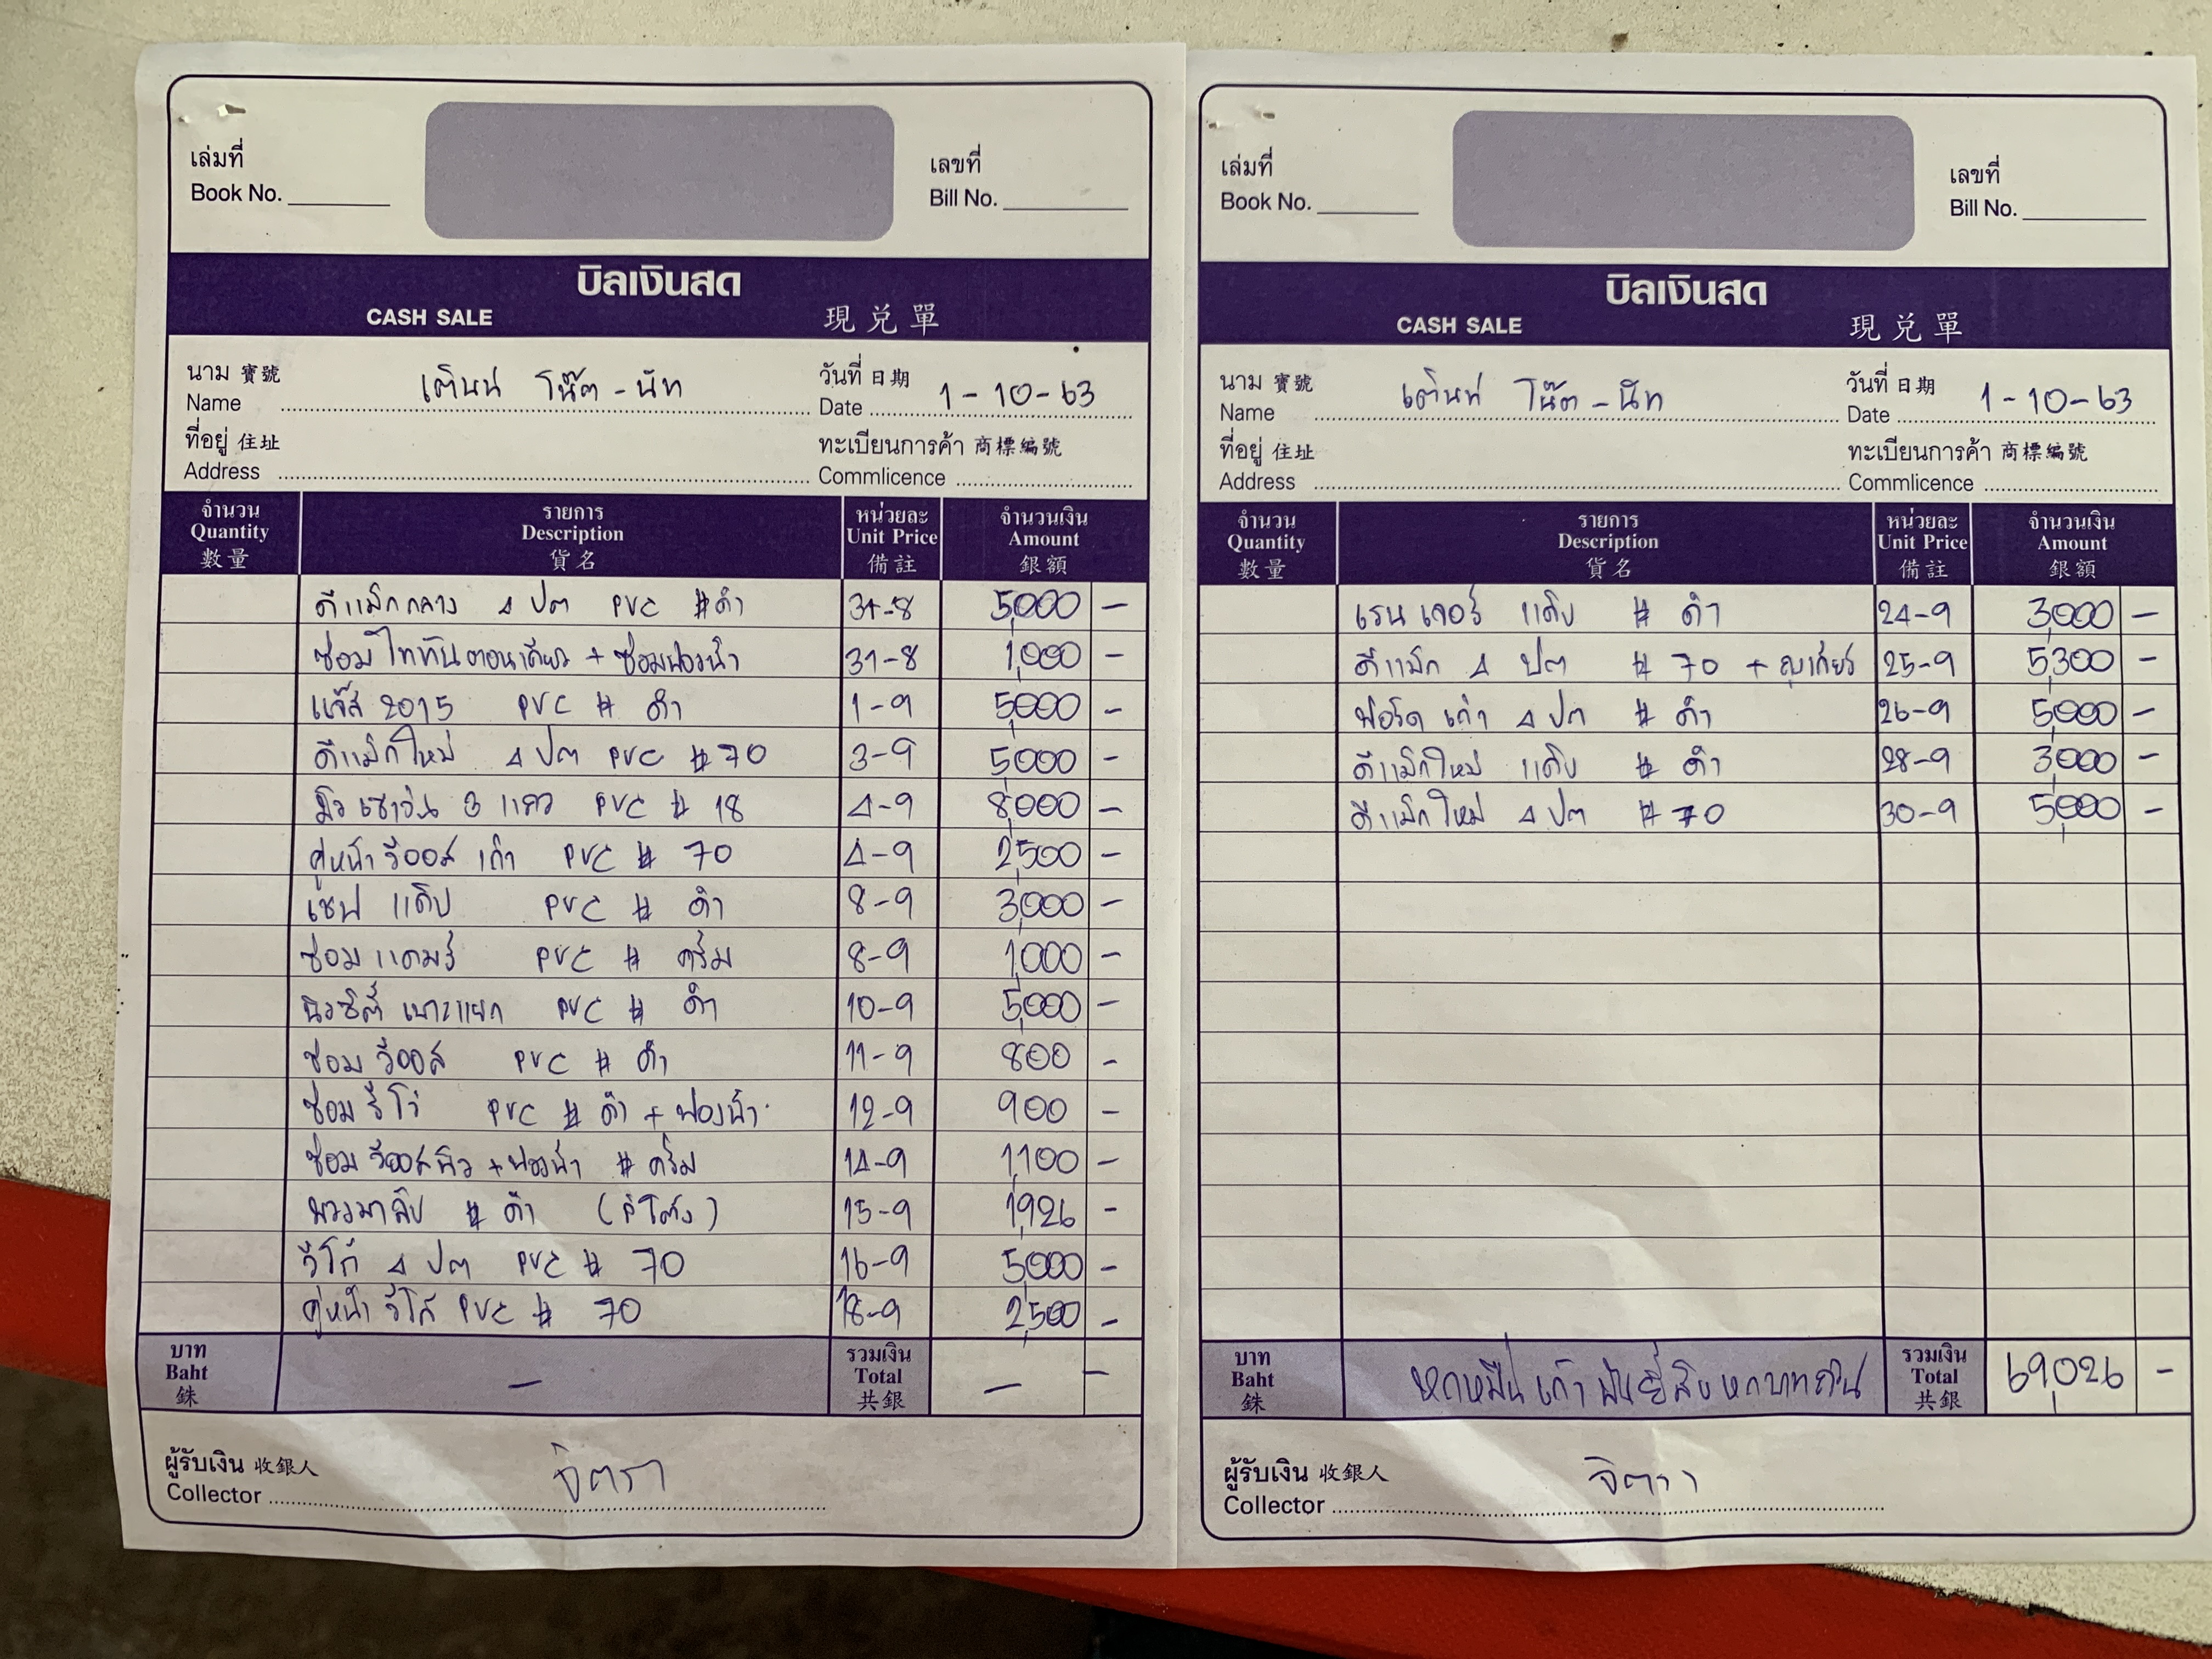 เล่มที่
Book No.
เลขที่
Bill No.
บิลเงินสด
CASH SALE 現兌單
นาม 寶號
Name เต๊นท์ โน๊ต - นัท
วันที่ 日期
Date 1-10-63
ที่อยู่ 住址
Address
ทะเบียนการค้า 商標編號
Commlicence
จำนวน รายการ หน่วยละ จำนวนเงิน
Quantity Description Unit Price Amount
數量 貨名 備註 銀額
ดีแม็กกลาง 4 ปต PVC #ดำ 31-8 5,000 -
ซ่อมไททันตอนเดียว + ซ่อมฟองน้ำ 31-8 1,000 -
แจ๊ส 2015 PVC # ดำ 1-9 5,000 -
ดีแม็กใหม่ 4 ปต PVC #70 3-9 5,000 -
มิวเซเว่น 3 แถว PVC # 18 4-9 8,000 -
คู่หน้า วีออส เก่า PVC # 70 4-9 2,500 -
เชฟ แค๊บ PVC # ดำ 8-9 3,000 -
ซ่อมแคมรี่ PVC # ครีม 8-9 1,000 -
นิวซิตี้ เบาะแยก PVC # ดำ 10-9 5,000 -
ซ่อม วีออส PVC # ดำ 11-9 800 -
ซ่อม รีโว่ PVC # ดำ + ฟองน้ำ 12-9 900 -
ซ่อม วีออสนิว + ฟองน้ำ # ครีม 14-9 1,100 -
พวงมาลัย # ดำ 15-9 1,926 -
วีโก้ 4 ปต PVC # 70 16-9 5,000 -
คู่หน้า วีโก้ PVC # 70 18-9 2,500 -
บาท
Baht
銖
-
รวมเงิน
Total
共銀
- -
ผู้รับเงิน 收銀人
Collector จิตรา
เล่มที่
Book No.
เลขที่
Bill No.
บิลเงินสด
CASH SALE 現兌單
นาม 寶號
Name เต๊นท์ โน๊ต - นัท
วันที่ 日期
Date 1-10-63
ที่อยู่ 住址
Address
ทะเบียนการค้า 商標編號
Commlicence
จำนวน รายการ หน่วยละ จำนวนเงิน
Quantity Description Unit Price Amount
數量 貨名 備註 銀額
เรนเจอร์ แค๊บ # ดำ 24-9 3,000 -
ดีแม็ก 4 ปต # 70 + ถุงเกียร์ 25-9 5,300 -
ฟอร์ด เก่า 4 ปต # ดำ 26-9 5,000 -
ดีแม็กใหม่ แค๊บ # ดำ 28-9 3,000 -
ดีแม็กใหม่ 4 ปต # 70 30-9 5,000 -
บาท
Baht
銖
หกหมื่นเก้าพันยี่สิบหกบาทถ้วน
รวมเงิน
Total
共銀
69,026 -
ผู้รับเงิน 收銀人
Collector จิตรา